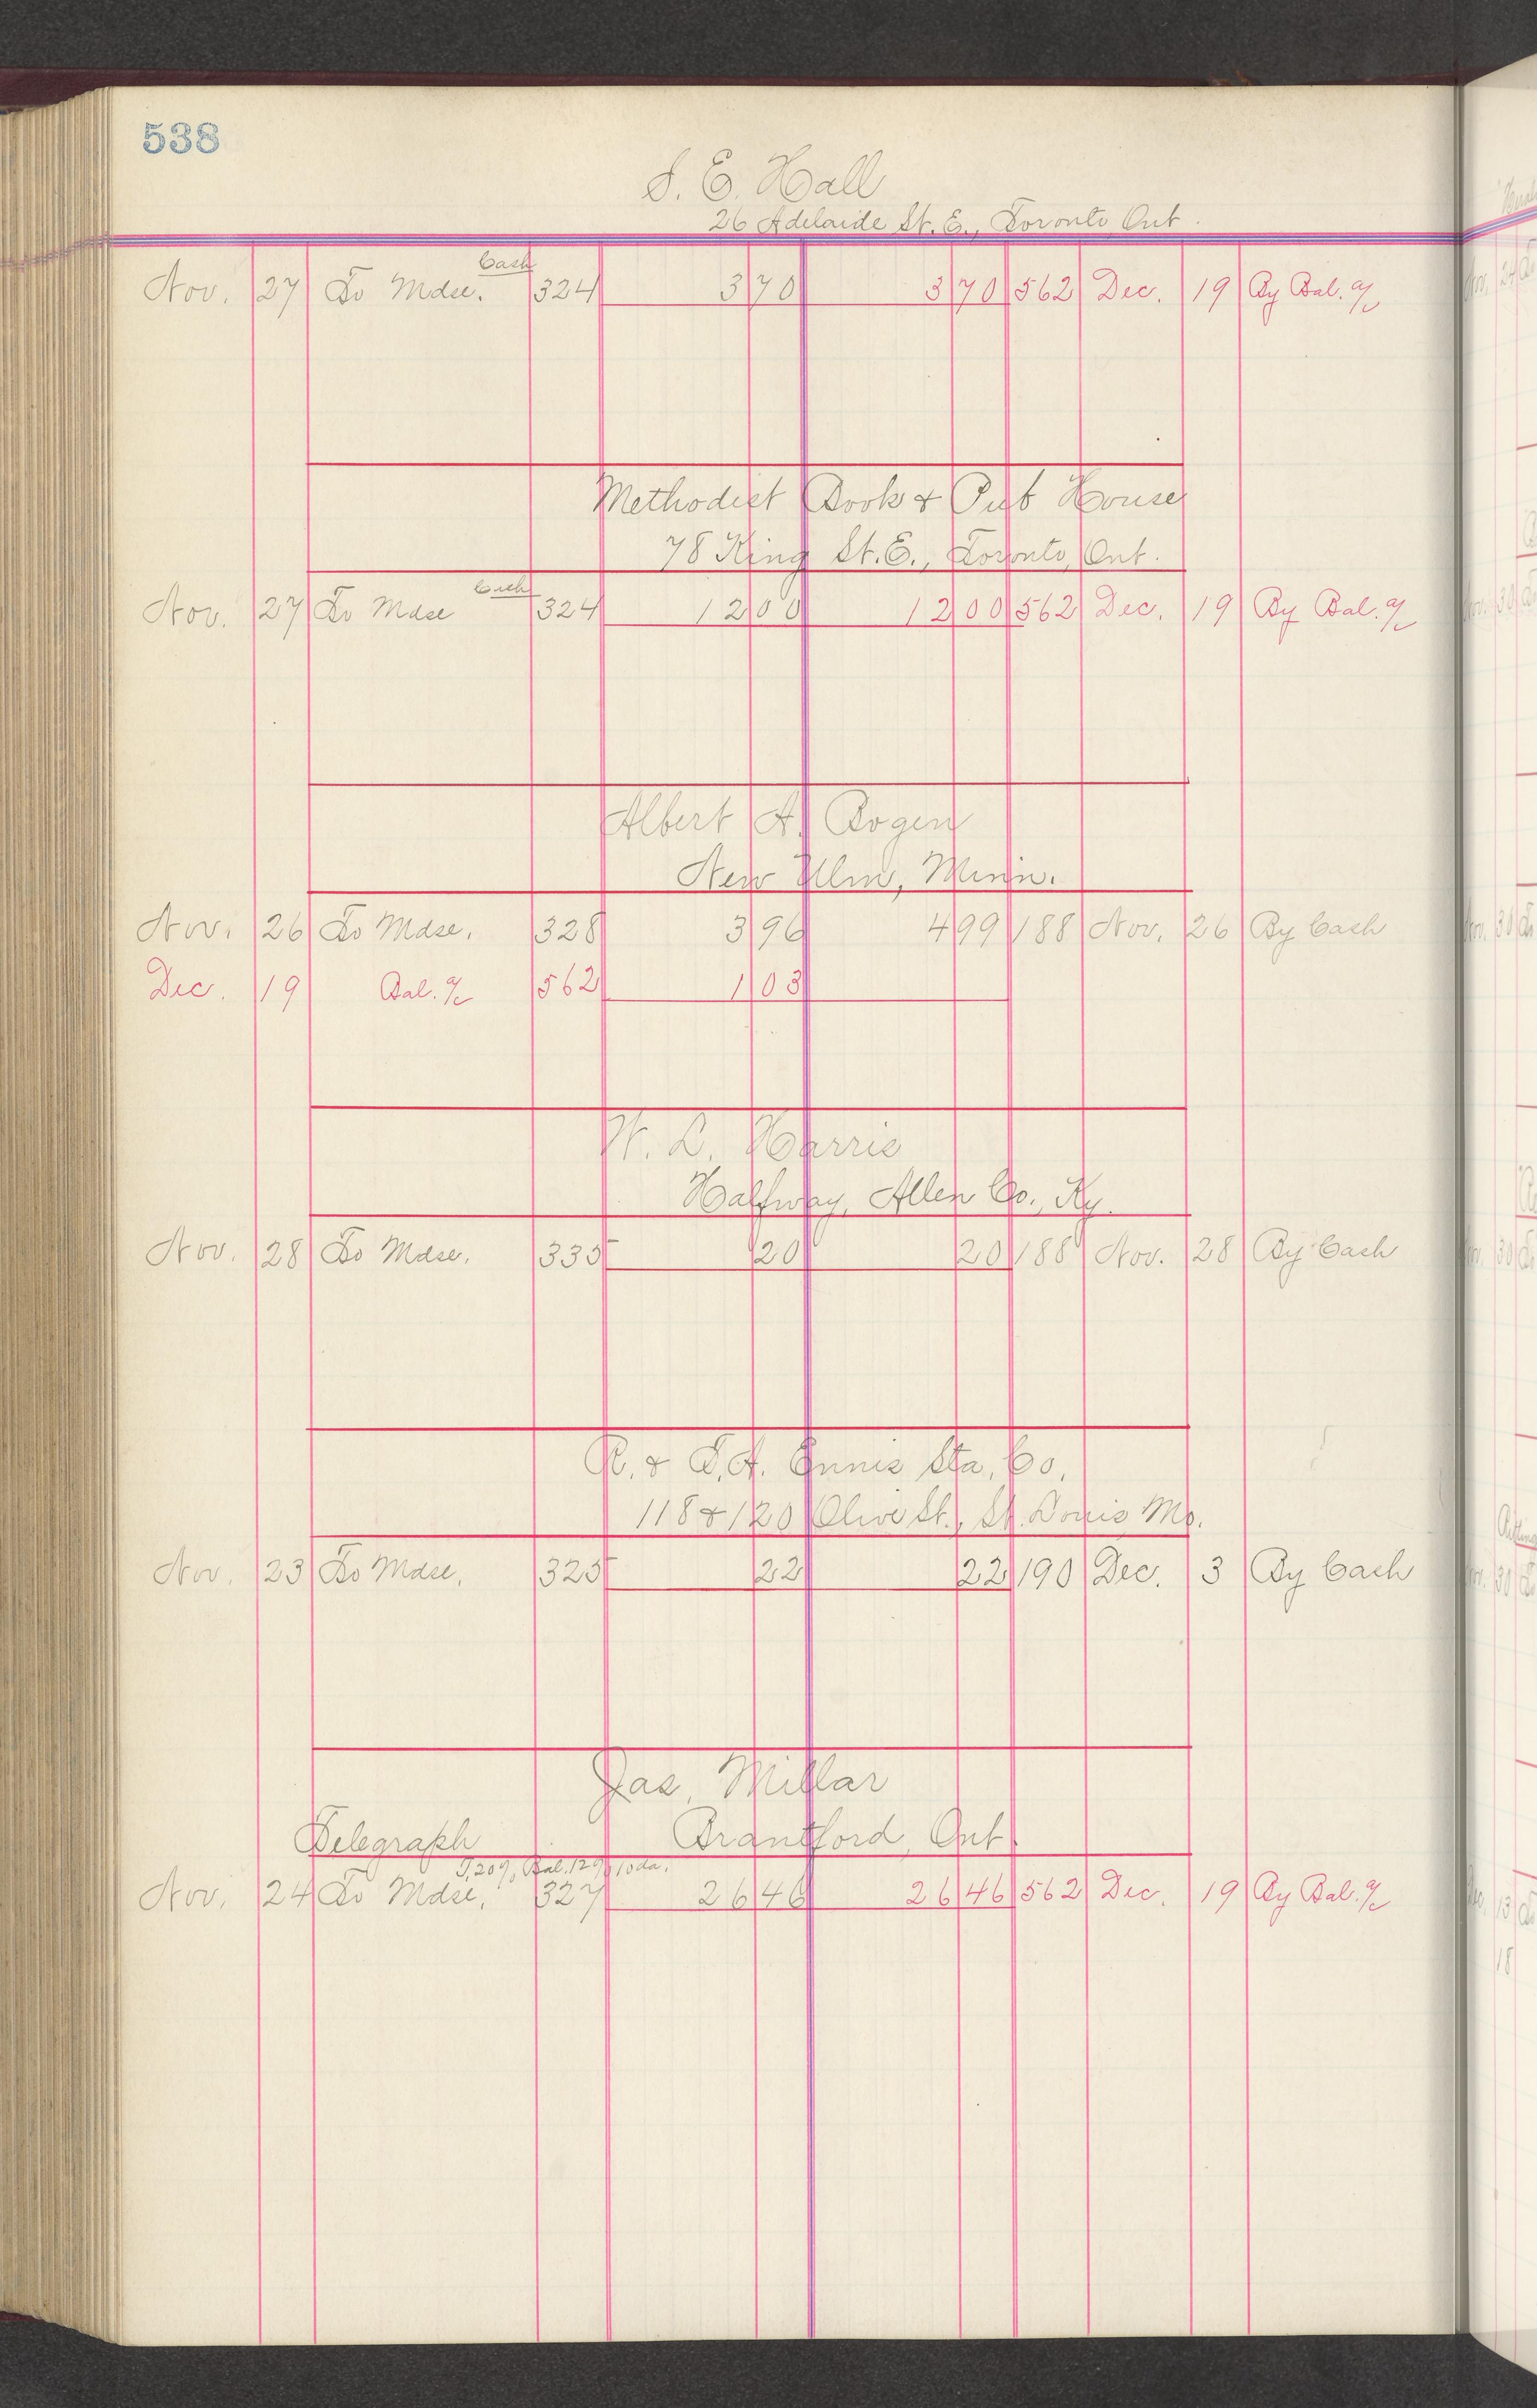 538
S. E. Hall
26 Adelaide St. E., Toronto, Ont.
Cash
Nov. 27 To Mdse. 324 3 70 3 70 562 Dec. 19 By Bal. a/c
Methodist Book & Pub House
78 King St. E., Toronto, Ont.
Cash
Nov. 27 To Mdse 324 12 00 12 00 562 Dec. 19 By Bal. a/c
Albert A. Bogen
New Ulm, Minn.
Nov. 26 To Mdse. 328 3 96 4 99 188 Nov. 26 By Cash
Dec. 19 Bal. a/c 562 1 03
W. L. Harris
Halfway, Allen Co., Ky.
Nov. 28 To Mdse. 335 20 20 188 Nov. 28 By Cash
R. & T. A. Ennis Sta. Co.
118 & 120 Olive St., St. Louis Mo.
Nov. 23 To Mdse. 325 22 22 190 Dec. 3 By Cash
Jas. Millar
Telegraph Brantford, Ont.
T. 20%, Bal. 12% 10 da.
Nov. 24 To Mdse. 327 26 46 26 46 562 Dec. 19 By Bal. a/c